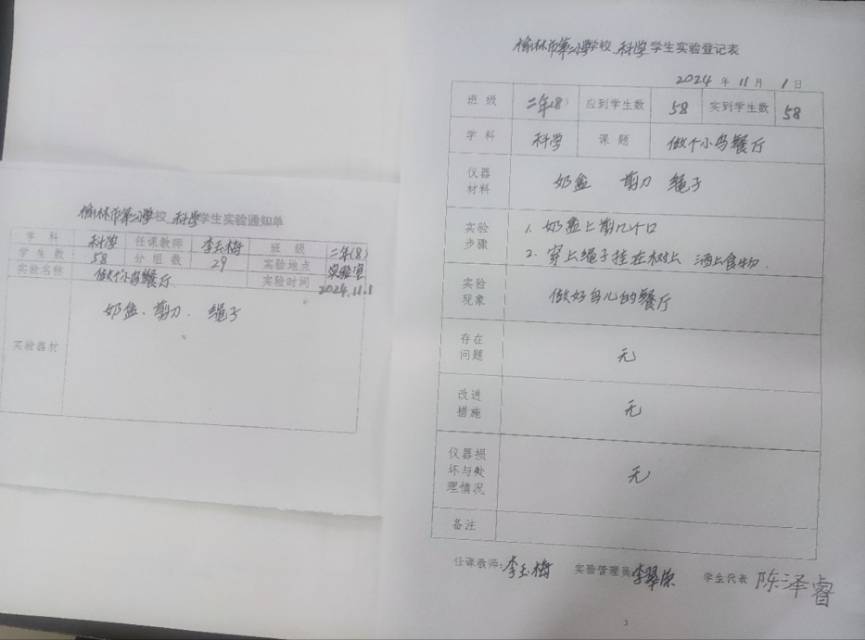 榆林市第二小学校 科学 学生实验通知单
学科 科学 任课教师 李玉梅 班级 二年(8)
学生数 58 分组数 29 实验地点 实验室
实验名称 做个小鸟餐厅 实验时间 2024.11.1
实验器材 奶盒、剪刀、绳子
榆林市第二小学校 科学 学生实验登记表
2024 年 11 月 1 日
班级 二年(8) 应到学生数 58 实到学生数 58
学科 科学 课题 做个小鸟餐厅
仪器材料 奶盒 剪刀 绳子
实验步骤 1. 奶盒上剪几个口
2. 穿上绳子挂在树上 洒上食物.
实验现象 做好鸟儿的餐厅
存在问题 无
改进措施 无
仪器损坏与处理情况 无
备注
任课教师:李玉梅 实验管理员 李翠 学生代表 陈泽睿
3